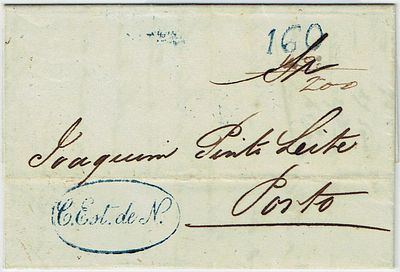 160
Sr
200
Joaquim Pinto Leite
Porto
C. Est. de N.